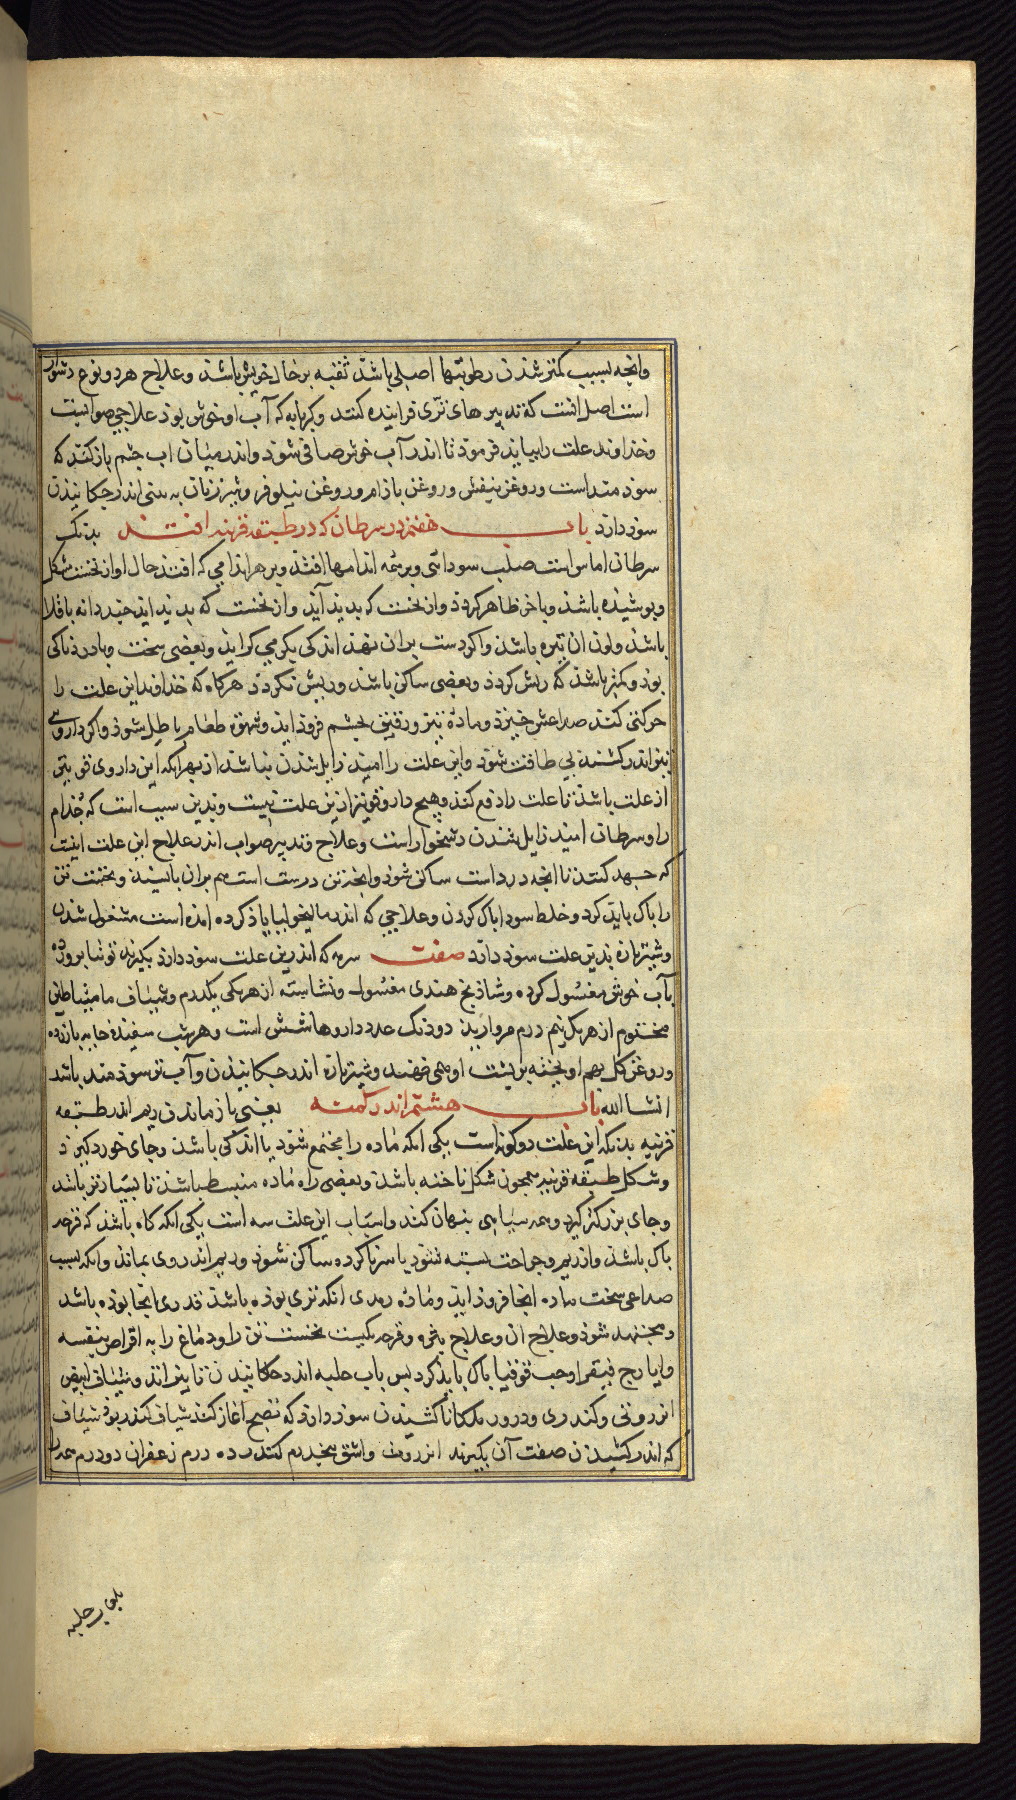 وانچه بسبب کمتر شدن رطوبتها اصلی باشد ثقبه بر حال خویش باشد و علاج هر دو نوع دشوار
است اصل انست که تدبیر های تری فزاینده کنند و کرمابه که آب او خوش بود علاجی صوابست
و خذاوند علت را بباید فرمود تا اندر آب خوش صافی شود و اندر میان اب چشم باز کند که
سودمند است و روغن بنفش و روغن بادام و روغن نیلوفر و شیر زنان به بینی اندر چکانیدن
سود دارد باب هفتم در سرطان که در طبقه قرنیه افتد بدنک
سرطان اماس است صلب سودائی و بر همه اندامها افتد و بر هر اندامی که افتد حال او از نخست مشکل
و پوشیده باشد و باخر ظاهر کردد و از نخست که پدید آید و از نخست که پدید اید چند دانه باقلا
باشد و لون ان تیره باشد و اکر دست بران نهند اندکی بکرمی کراید و بعضی سخت و با دردناکی
بود و کمتر باشد که ریش کردد و بعضی ساکن باشد و ریش نکردد هرکاه که خذاوند این علت را
حرکتی کند صداعش خیزد و ماده تیز و رقیق بچشم فرود اید و شهوة طعام باطل شود و اکر داروی
تیز اندر کشند بی طاقت شود و این علت را امید زایل شدن نباشد از بهر انکه این داروی قوی‌تر
از علت باشد تا علت را دفع کند و هیچ دارو قوی‌تر ازین علت نیست و بدین سبب است که جذام
را و سرطان امید زایل شدن دشخوار است و علاج و تدبیر صواب اندر علاج این علت اینست
که جهد کنند تا انچه درد است ساکن شود و انچه تن درست است هم بران بایستد و نخست تن
را پاک باید کرد و خلط سودا پاک کردن و علاجی که اندر مالیخولیا یاد کرده امده است مشغول شدن
و شیر تازه بدین علت سود دارد صفت سرمه که اندرین علت سود دارد بکیرند توتیا پرورده
بآب خوش مغسول کرده و شاذنج هندی مغسول و نشاسته از هریکی یکدرم و شیاف مامیثا طین
مختوم از هریک نیم درم مروارید دو دنک عدد داروها شش است و هر شب سفیده خایه با زرده
و روغن کل بهم اویخته بر پشت او همی نهند و شیر تازه اندر چکانیدن و آب تر سودمند باشد
انشا الله باب هشتم اندر کمنه یعنی باز ماندن ریم اندر طبقه
قرنیه بدنکه این علت دو کونه است یکی انکه ماده را مجتمع شود یا اندکی باشد و جای خورد کیرد
و شکل طبقه قرنیه همچون شکل ناخنه باشد و بعضی را ماده منبسط باشد تا بسیارتر باشد
و جای بزرکتر کیرد و همه سیاهی بنهان کند و اسباب این علت سه است یکی انکه کاه باشد که قرحه
پاک باشد و از ریم و جراحت بسته شود یا سر ناکرده ساکن شود و ریم اندر وی بماند و انکه بسبب
صداعی سخت ماده انجا فرود اید و ماده رمدی انکه تری بوده باشد قدری انجا بوده باشد
و مجتمد شود و علاج ان و علاج بثره و قرحه یکیست نخست تن را و دماغ را به اقراص بنفسه
و ایارج فیقرا و حب قوقیا پاک باید کرد پس باب حلبه اندر چکانیدن تا بپزاند و شیاف ابیض
انزروتی و کندری و درور ملکایا کشیدن سود دارد که نضج اغاز کند شیاف کندر بود شیاف
که اندر کشیدن صفت آن بکیرند انزروت و اشق پنجدرم کندر ده درم زعفران دو درم همه را
بلعاب حلبه